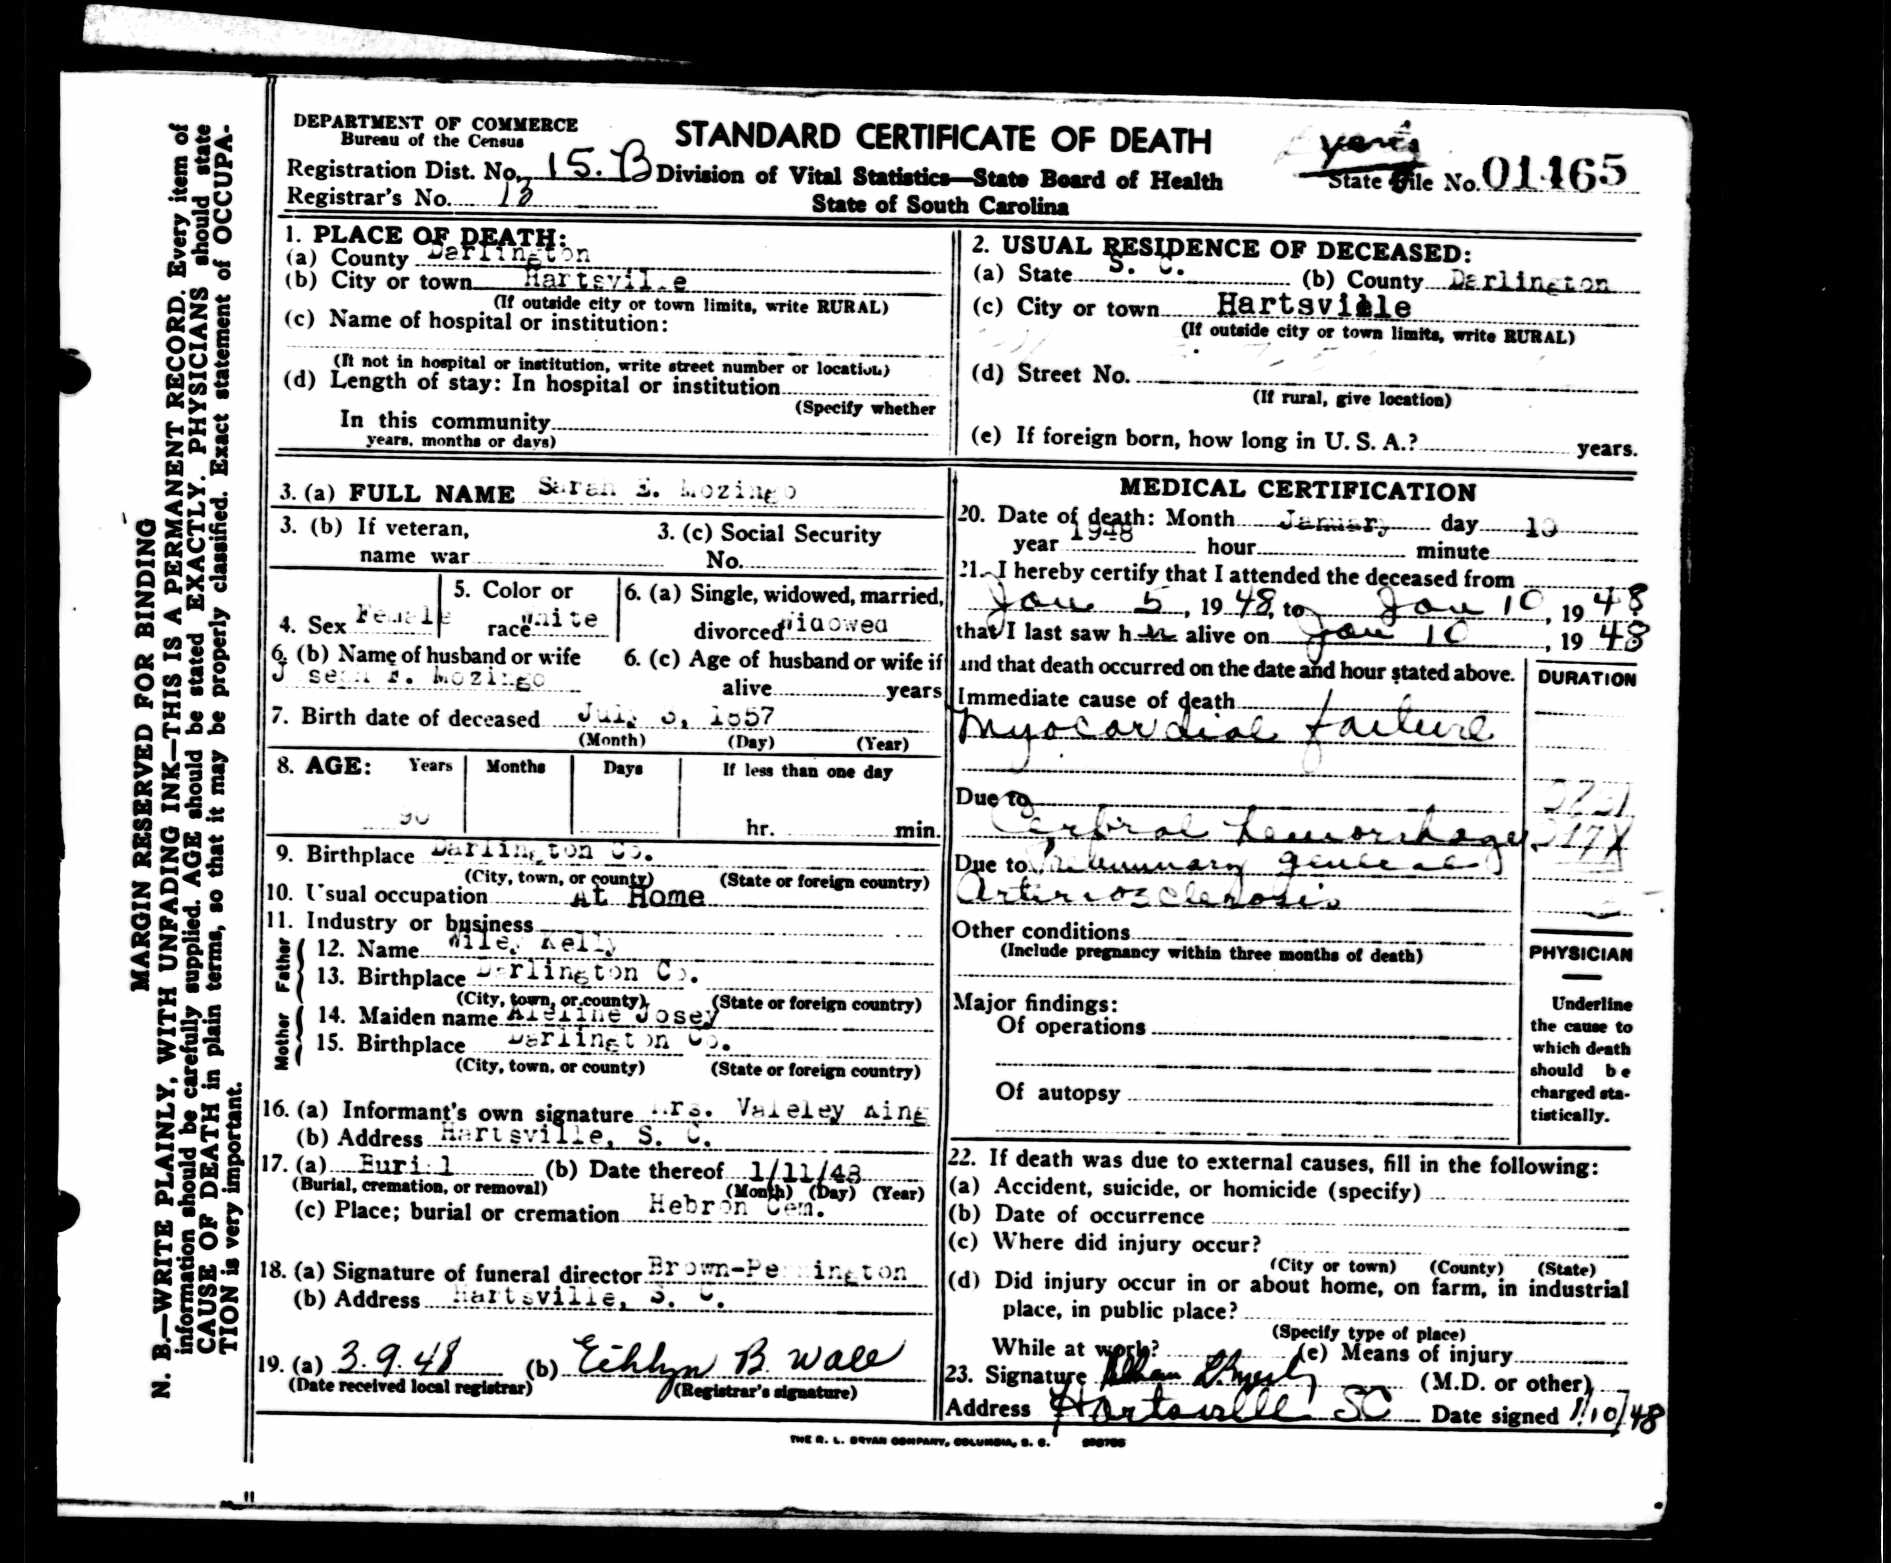 DEPARTMENT OF COMMERCE
Bureau of the Census
STANDARD CERTIFICATE OF DEATH
Registration Dist. No. 15.B
Division of Vital Statistics—State Board of Health
State File No. 01465
Registrar's No. 13
State of South Carolina
1. PLACE OF DEATH:
(a) County Darlington
(b) City or town Hartsville
(If outside city or town limits, write RURAL)
(c) Name of hospital or institution:
(If not in hospital or institution, write street number or location)
(d) Length of stay: In hospital or institution
(Specify whether
In this community
years, months or days)
2. USUAL RESIDENCE OF DECEASED:
(a) State S. C. (b) County Darlington
(c) City or town Hartsville
(If outside city or town limits, write RURAL)
(d) Street No.
(If rural, give location)
(e) If foreign born, how long in U. S. A.? years.
3. (a) FULL NAME Sarah E. Mozingo
3. (b) If veteran, 3. (c) Social Security
name war No.
4. Sex Female
5. Color or
race White
6. (a) Single, widowed, married,
divorced Widowed
6. (b) Name of husband or wife 6. (c) Age of husband or wife if
J seph F. Mozingo alive years
7. Birth date of deceased July 3, 1857
(Month) (Day) (Year)
8. AGE: Years Months Days If less than one day
90 hr. min.
9. Birthplace Darlington Co.
(City, town, or county) (State or foreign country)
10. Usual occupation At Home
11. Industry or business
Father
12. Name Wiley Kelly
13. Birthplace Darlington Co.
(City, town, or county) (State or foreign country)
Mother
14. Maiden name Josey
15. Birthplace Darlington Co.
(City, town, or county) (State or foreign country)
16. (a) Informant's own signature Mrs. Valeley King
(b) Address Hartsville, S. C.
17. (a) Burial (b) Date thereof 1/11/48
(Burial, cremation, or removal) (Month) (Day) (Year)
(c) Place; burial or cremation Hebron Cem.
18. (a) Signature of funeral director Brown-Pennington
(b) Address Hartsville, S. C.
19. (a) 3.9.48 (b) B. Wall
(Date received local registrar) (Registrar's signature)
MEDICAL CERTIFICATION
20. Date of death: Month January day 10
year 1948 hour minute
21. I hereby certify that I attended the deceased from
Jan 5, 1948, to Jan 10, 1948
that I last saw her alive on Jan 10, 1948
and that death occurred on the date and hour stated above.
DURATION
Immediate cause of death
Myocardial failure
Due to
Cerbral hemorrhage
Due to general
Arteriosclerosis
Other conditions
(Include pregnancy within three months of death)
PHYSICIAN
Major findings:
Of operations
Of autopsy
Underline
the cause to
which death
should be
charged sta-
tistically.
22. If death was due to external causes, fill in the following:
(a) Accident, suicide, or homicide (specify)
(b) Date of occurrence
(c) Where did injury occur?
(City or town) (County) (State)
(d) Did injury occur in or about home, on farm, in industrial
place, in public place?
(Specify type of place)
While at work? (e) Means of injury
23. Signature (M.D. or other)
Address Hartsville SC Date signed 1/10/48
THE R. L. BRYAN COMPANY, COLUMBIA, S. C.
MARGIN RESERVED FOR BINDING
N. B.—WRITE PLAINLY, WITH UNFADING INK—THIS IS A PERMANENT RECORD. Every item of
information should be carefully supplied. AGE should be stated EXACTLY. PHYSICIANS should state
CAUSE OF DEATH in plain terms, so that it may be properly classified. Exact statement of OCCUPA-
TION is very important.